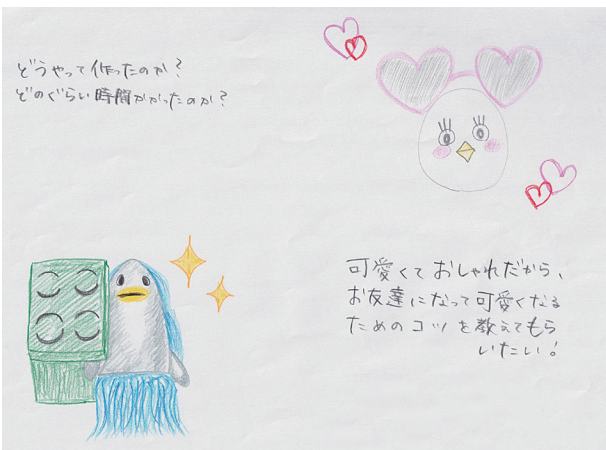 どうやって作ったのか?
どのぐらい時間かかったのか?
可愛くておしゃれだから、
お友達になって可愛くなる
ためのコツを教えてもら
いたい!